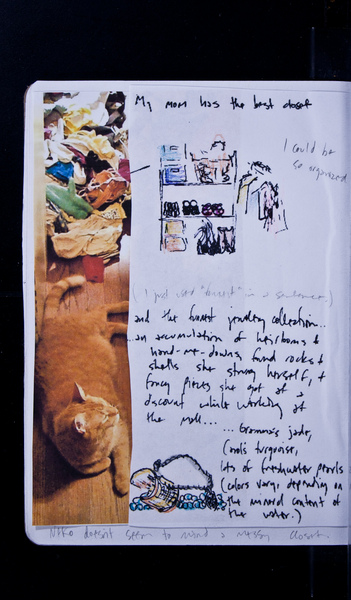 My mom has the best closet
I could be
so organized
(I just used "funnest" in a sentence.)
and the funnest jewelry collection...
an accumulation of heirlooms &
hand-me-downs, found rocks &
shells she strung herself, &
fancy pieces she got at a
discount while working at
the mall...
... Gramma's jade,
turquoise,
lots of freshwater pearls
(colors vary, depending on
the mineral content of
the water.)
NEKO doesn't seem to mind a messy closet.